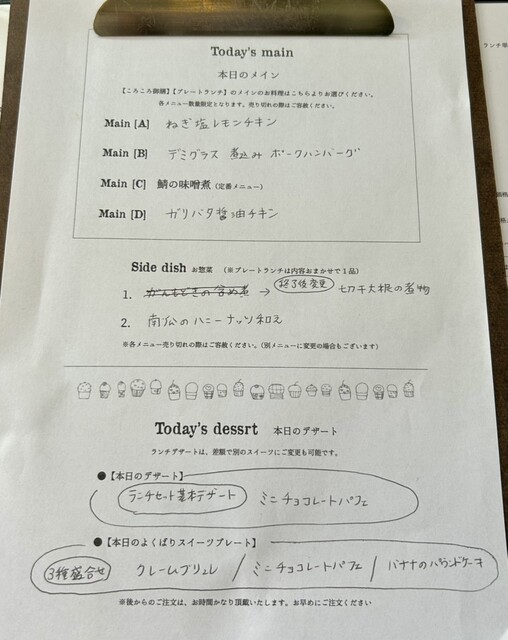 Today's main
本日のメイン
【ころころ御膳】【プレートランチ】のメインのお料理はこちらよりお選びください。
各メニュー数量限定となります。売り切れの際はご容赦ください。
Main [A] ねぎ塩レモンチキン
Main [B] デミグラス 煮込み ポークハンバーグ
Main [C] 鯖の味噌煮(定番メニュー)
Main [D] ガリバタ醤油チキン
Side dish お惣菜 (※プレートランチは内容おまかせで1品)
1. がんもどきの含め煮 → 終了後変更 切干大根の煮物
2. 南瓜のハニーナッツ和え
※各メニュー売り切れの際はご容赦ください。(別メニューに変更の場合もございます)
Today's dessrt 本日のデザート
ランチデザートは、差額で別のスイーツにご変更も可能です。
●【本日のデザート】
ランチセット基本デザート ミニチョコレートパフェ
●【本日のよくばりスイーツプレート】
3種盛合せ クレームブリュレ / ミニチョコレートパフェ / バナナのパウンドケーキ
※後からのご注文は、お時間かなり頂戴いたします。お早めにご注文ください
ランチ単